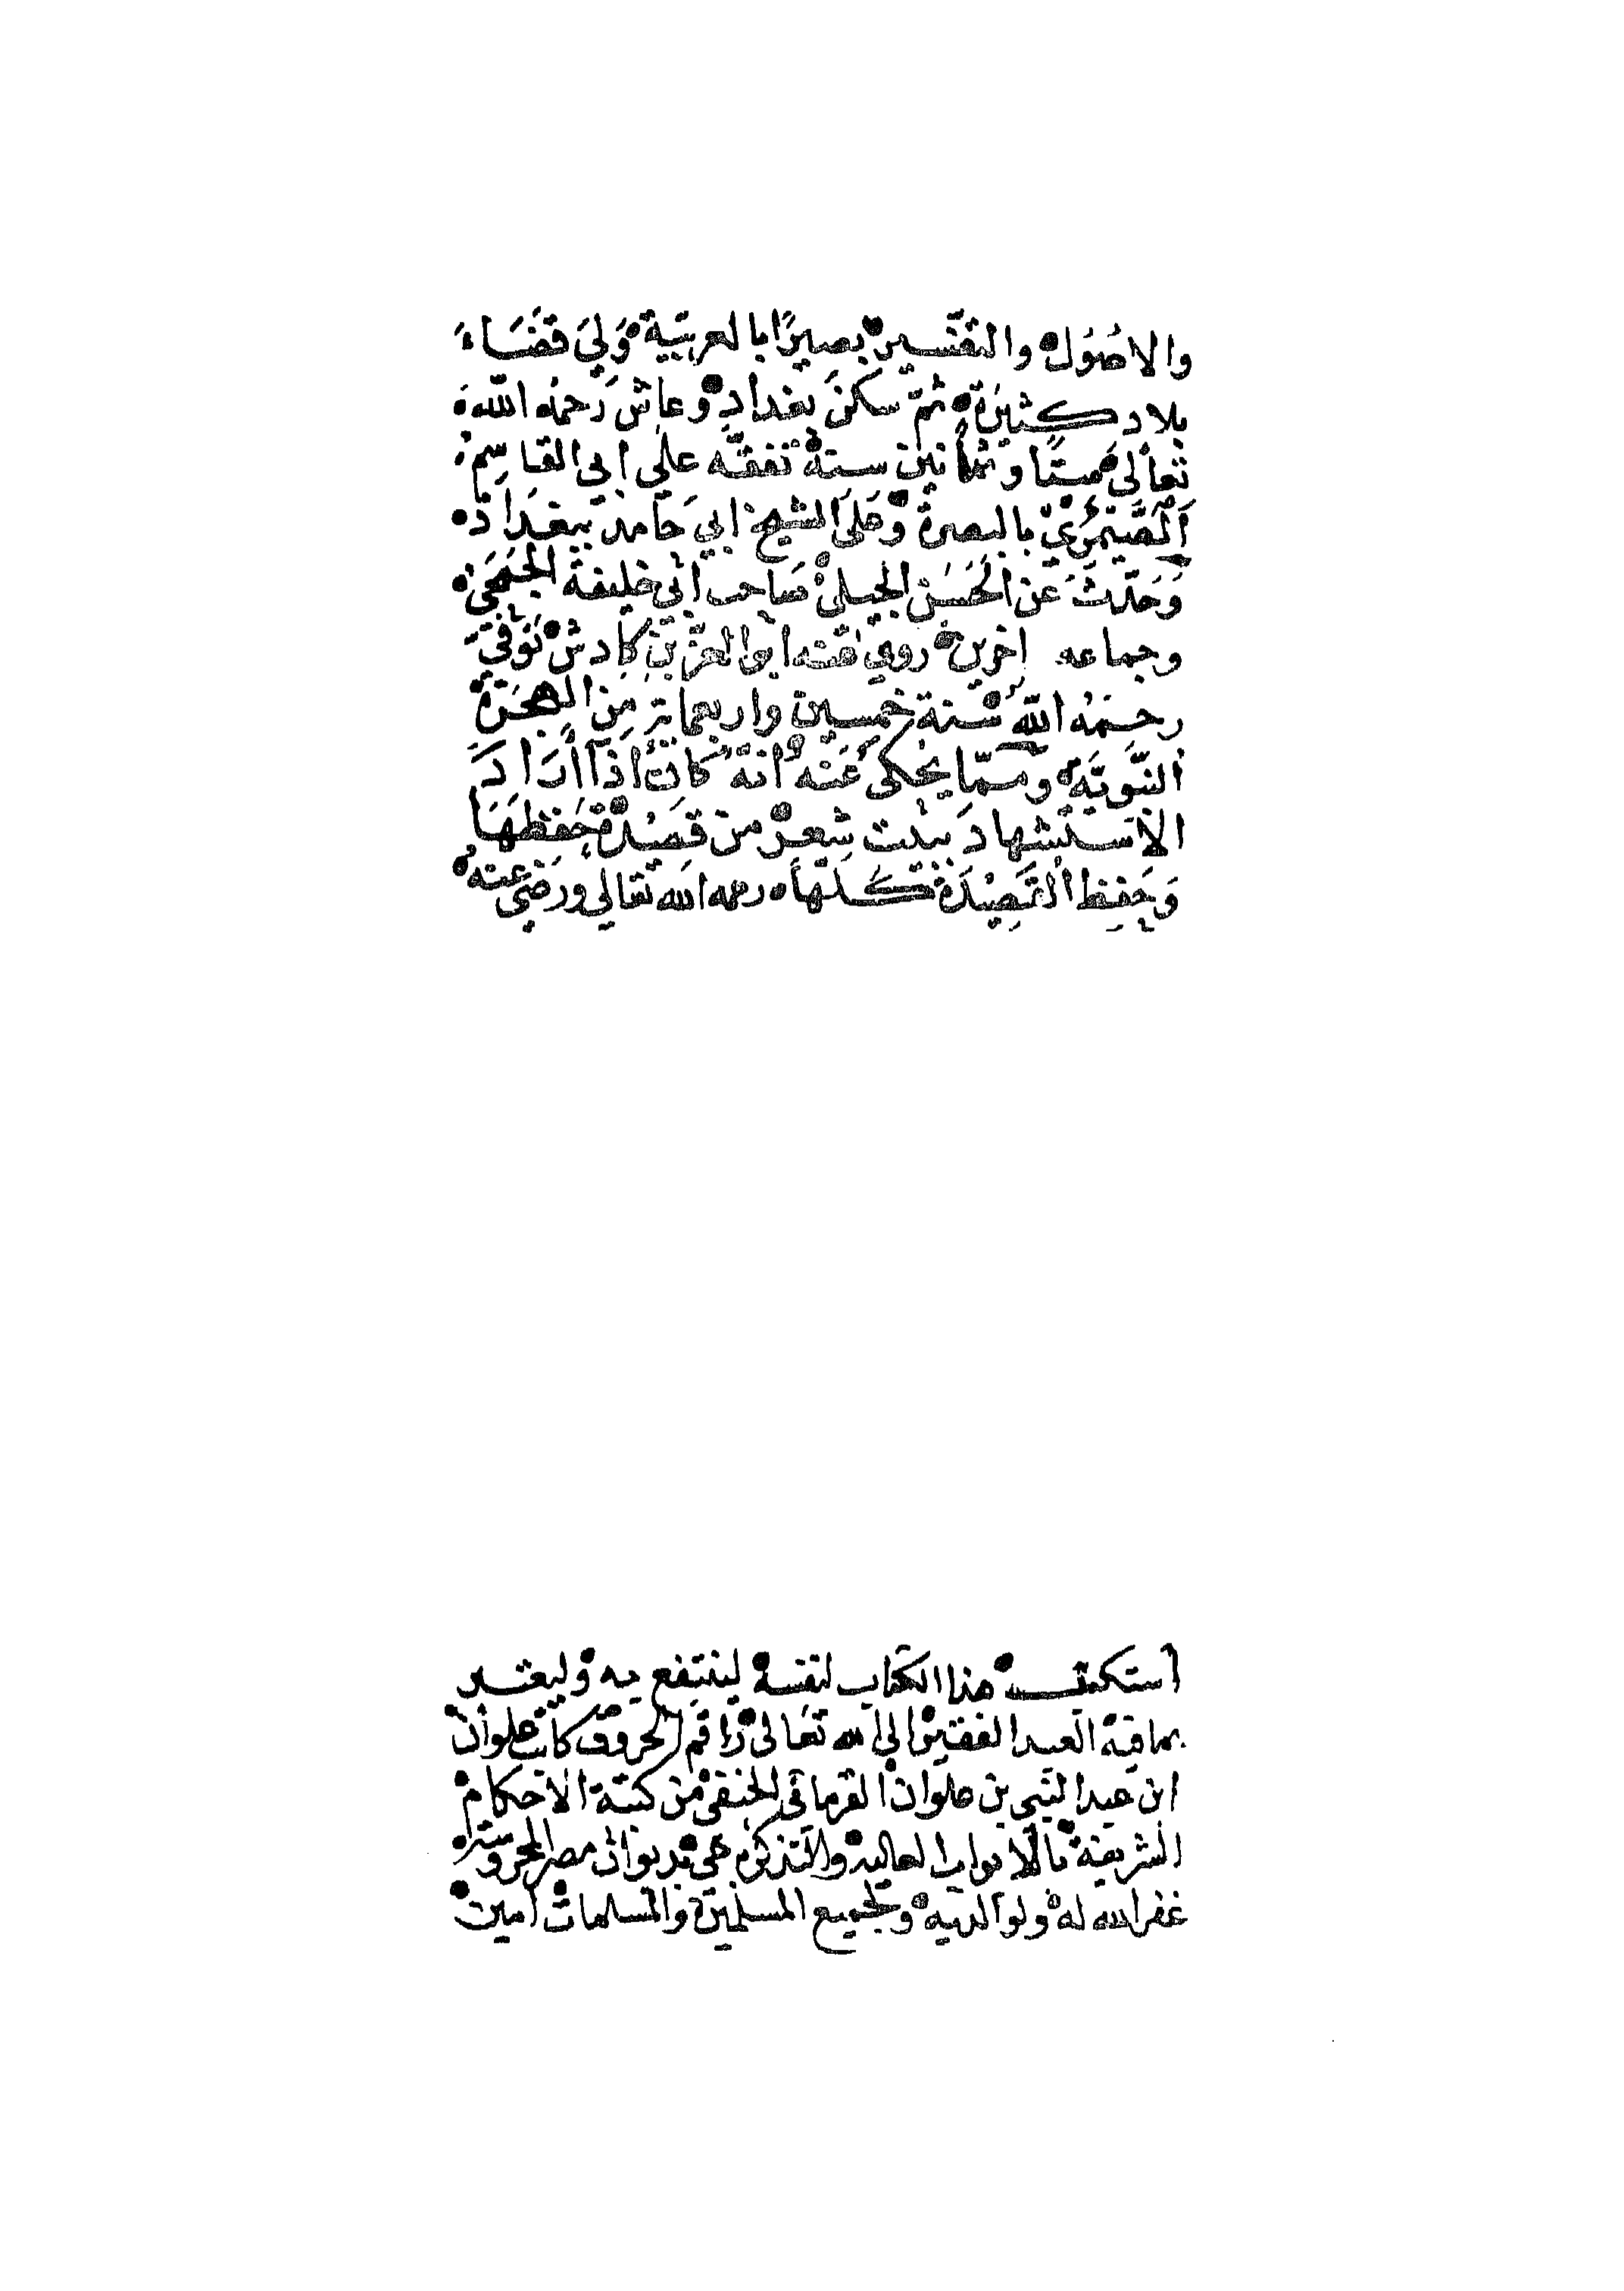 والاصُول والتفسير بصيرًا بالعربيّة وَليَ قضَاءَ
بلاد كثيرة ثمّ سكنَ بغداد وعاش رَحمهُ اللّه
تعالى ستًا وثمانين سنة تفقّه على ابي القاسِم
الصَّيمَريّ بالبصرة وعَلَى الشيخ ابي حَامد ببغدَاد
وَحَدّث عَن الحَسَن الجيلي صَاحب ابي خليفة الجُمَحي
وجماعه اخرين روي عنه ابوا العز بن كادش تُوفيَ
رحمَهُ اللّه سَنة خمسين واربعماية مِن الهجرَة
النبَويَّة وممّا يحُكى عَنه انهُ كان اذا أرَادَ
الاسْتشهادَ ببَيت شِعر من قصِيْدة حَفظهَا
وَحَفِظ القصِيْدَة كلهَا رحمه الله تعالي ورضي عنه
استكتب هذا الكتاب لنفسه لينتفع به وليعتبر
بما فيه العبد الفقير الى الله تعَالى راقم الحروف كاتب علوان
ابن عبد النبي بن علوان القرماني الحنفي من كتبة الاحكام
الشريفة بالابواب العالية والتذكره جي بديوان مصر المحروسة
غفر الله له ولوالديه ولجميع المسلمين والمسلمات امين